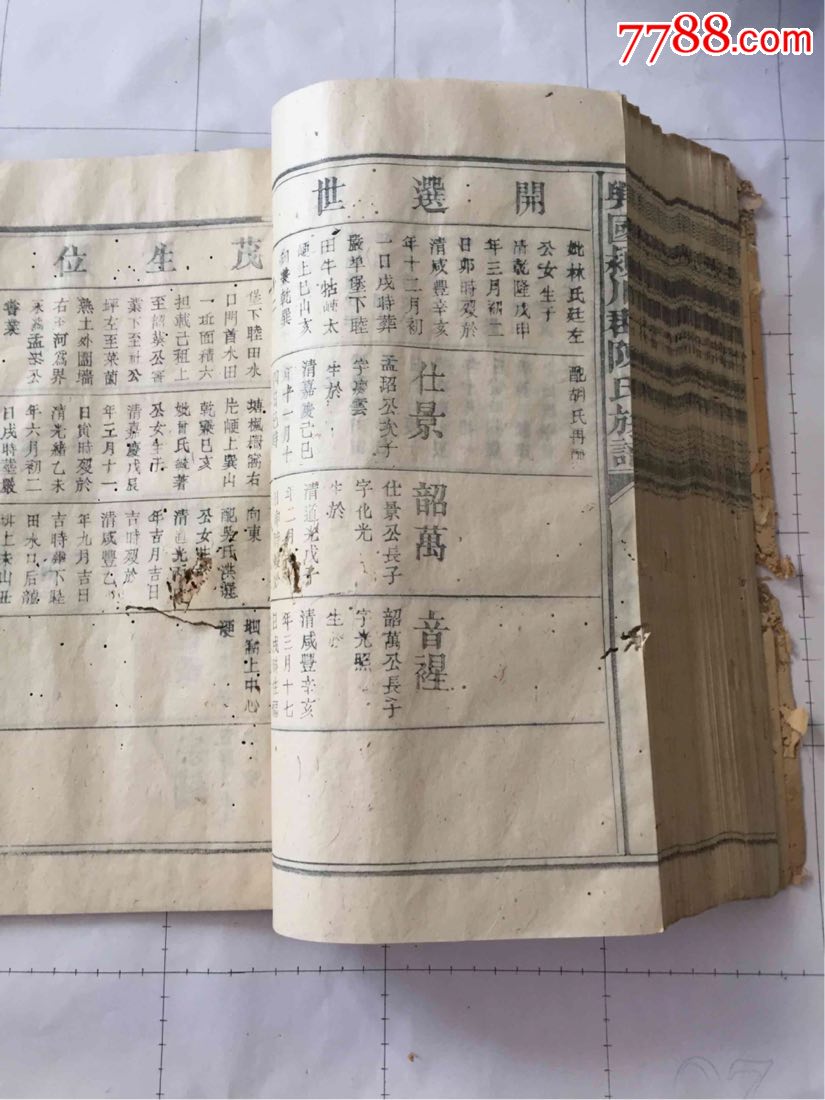 7788.com
興國潁川郡陳氏族譜
開選世
妣林氏廷左
公女生于
清乾隆戊申
年三月初二
日卯時歿於
清咸豐辛亥
年十二月初
一日戌時葬
嚴坐堡下睦
田牛牯
上巳山亥
向
配胡氏再
仕景
孟韶公次子
字凌雲
生於
清嘉慶己巳
年十一月十
韶萬
仕景公長子
字化光
生於
清道光戊子
年二月
音裎
韶萬公長子
字光照
生於
清咸豐辛亥
年三月十七
茂生位
堡下睦田水
口門首水田
一坵面積六
担載己租上
至韶葵公
業下至社公
坪左至菜園
熟土外圍墻
右至河為界
永為孟公
嘗業
右
片上巽山
乾巽巳亥
妣曾氏毓著
公女生于
清嘉慶戊辰
年三月十一
日寅時歿於
清光緒乙未
年六月初二
日戌時塟嚴
向東
配吳氏洪選
公女生
清道光
年吉月吉日
吉時歿於
清咸豐乙
年九月吉日
吉時葬下睦
田水口后龍
上未山丑
上中心